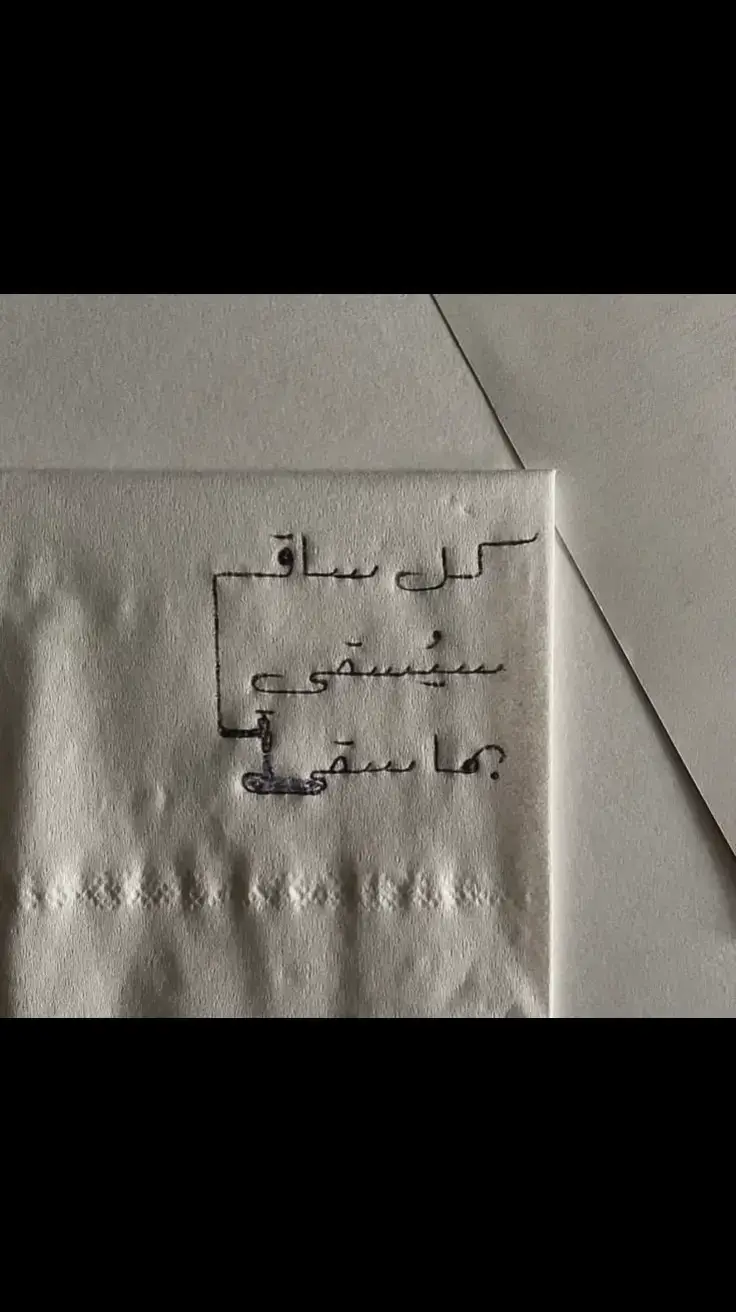 كل ساقٍ
سيُسقى
بما سقى